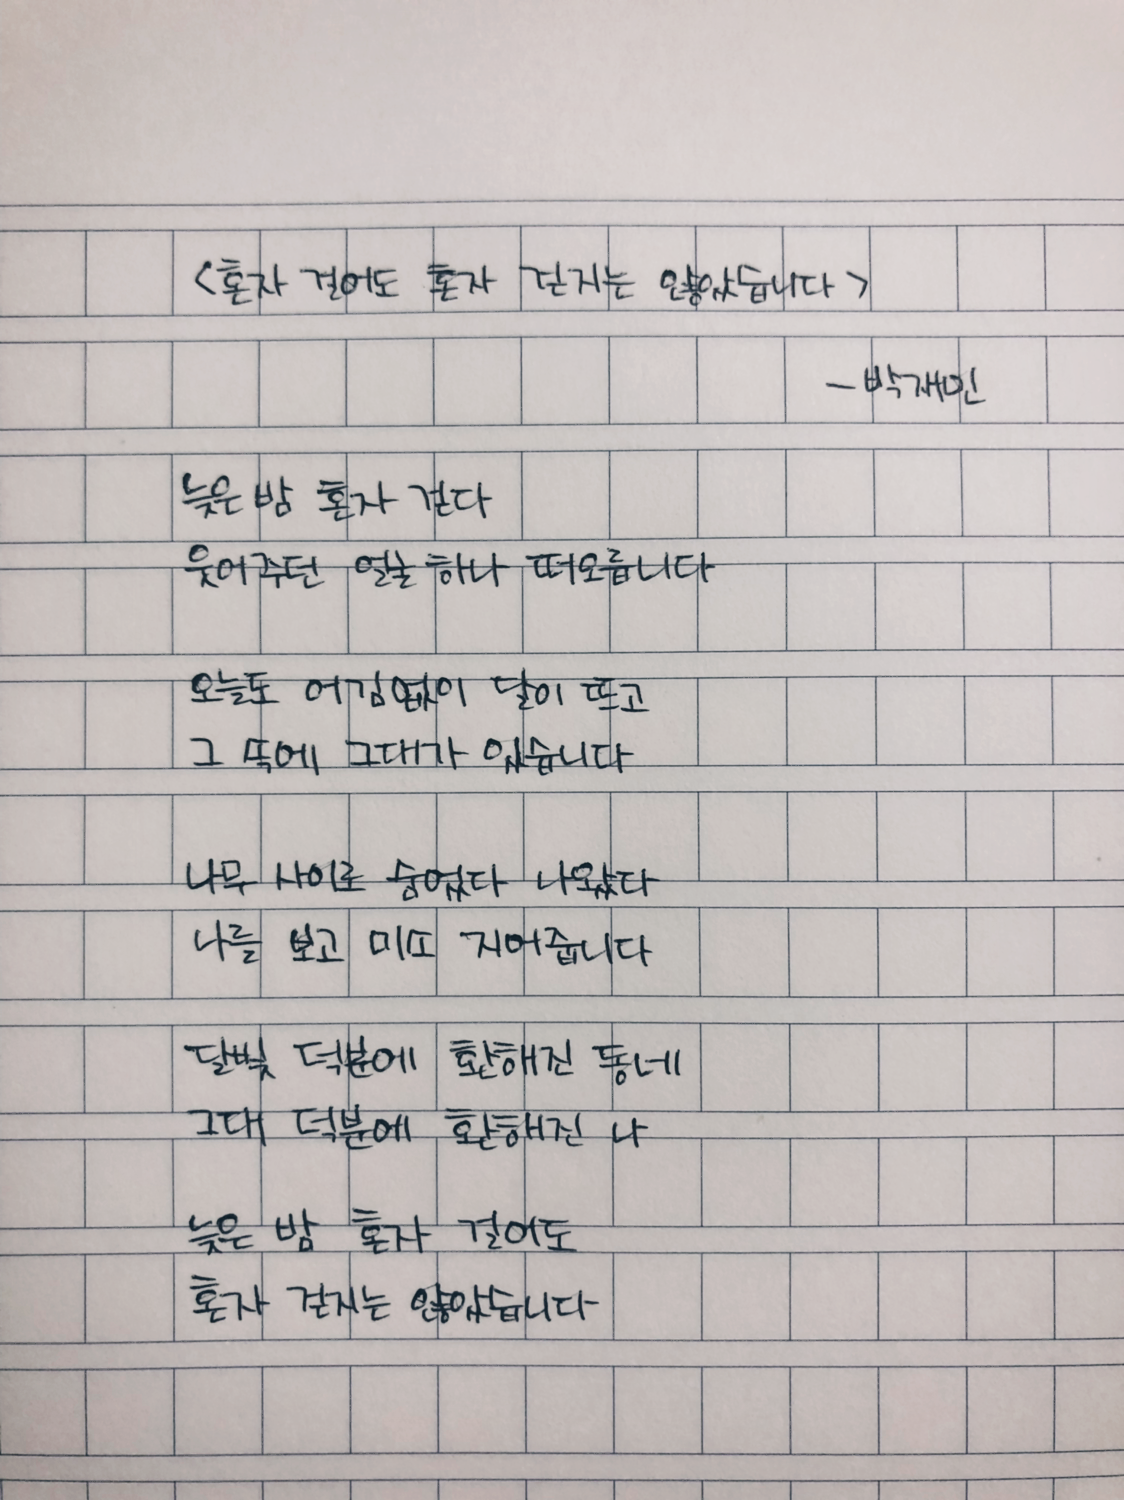 <혼자 걸어도 혼자 걷지는 않았습니다>
- 박재민
늦은 밤 혼자 걷다
웃어주던 얼눌 하나 떠오릅니다
오늘도 어김없이 달이 뜨고
그 뚝에 그대가 있습니다
나무 사이로 숨었다 나왔다
나를 보고 미또 지어줍니다
달빛 덕분에 환해진 동네
그대 덕분에 환해진 나
늦은 밤 혼자 걸어도
혼자 걷지는 않았습니다